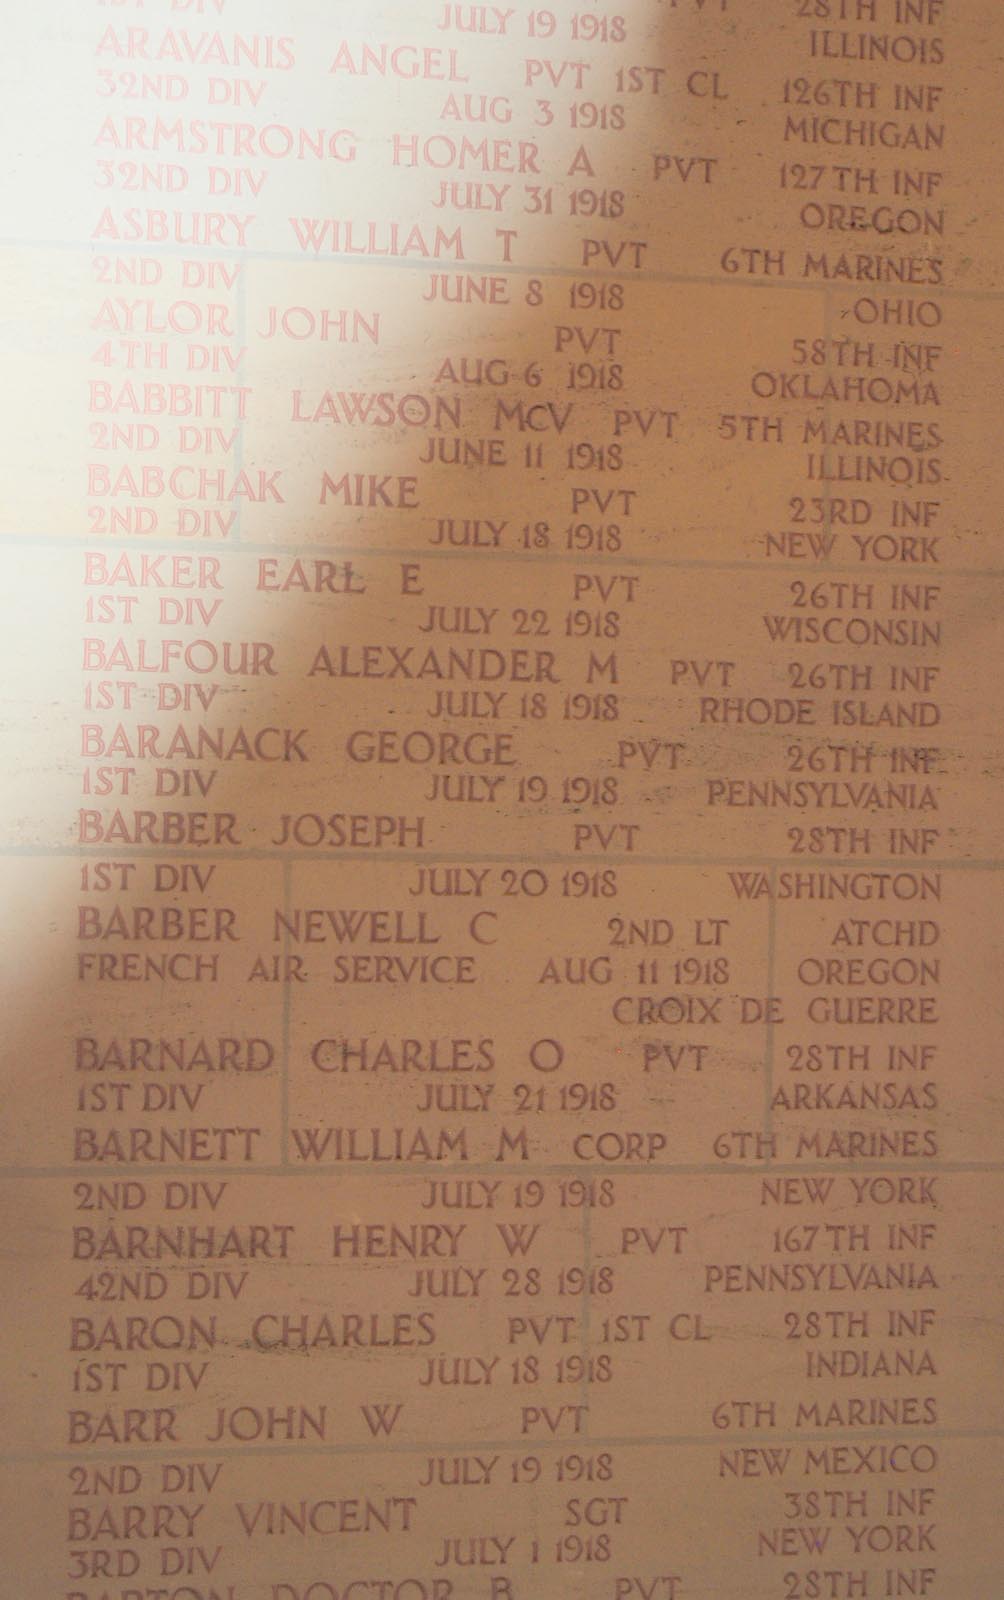 1ST DIV JULY 19 1918 ILLINOIS
PVT 28TH INF
ARAVANIS ANGEL PVT 1ST CL 126TH INF
32ND DIV AUG 3 1918 MICHIGAN
ARMSTRONG HOMER A PVT 127TH INF
32ND DIV JULY 31 1918 OREGON
ASBURY WILLIAM T PVT 6TH MARINES
2ND DIV JUNE 8 1918 OHIO
AYLOR JOHN PVT 58TH INF
4TH DIV AUG 6 1918 OKLAHOMA
BABBITT LAWSON MCV PVT 5TH MARINES
2ND DIV JUNE 11 1918 ILLINOIS
BABCHAK MIKE PVT 23RD INF
2ND DIV JULY 18 1918 NEW YORK
BAKER EARL E PVT 26TH INF
1ST DIV JULY 22 1918 WISCONSIN
BALFOUR ALEXANDER M PVT 26TH INF
1ST DIV JULY 18 1918 RHODE ISLAND
BARANACK GEORGE PVT 26TH INF
1ST DIV JULY 19 1918 PENNSYLVANIA
BARBER JOSEPH PVT 28TH INF
1ST DIV JULY 20 1918 WASHINGTON
BARBER NEWELL C 2ND LT ATCHD
FRENCH AIR SERVICE AUG 11 1918 OREGON
CROIX DE GUERRE
BARNARD CHARLES O PVT 28TH INF
1ST DIV JULY 21 1918 ARKANSAS
BARNETT WILLIAM M CORP 6TH MARINES
2ND DIV JULY 19 1918 NEW YORK
BARNHART HENRY W PVT 167TH INF
42ND DIV JULY 28 1918 PENNSYLVANIA
BARON CHARLES PVT 1ST CL 28TH INF
1ST DIV JULY 18 1918 INDIANA
BARR JOHN W PVT 6TH MARINES
2ND DIV JULY 19 1918 NEW MEXICO
BARRY VINCENT SGT 38TH INF
3RD DIV JULY 1 1918 NEW YORK
BARTON DOCTOR B PVT 28TH INF